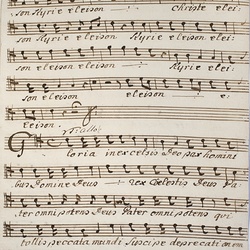 son Kyrie eleison — Christe elei:
son Kyrie eleison Kyrie eleison elei:
son eleison eleison — Kyrie elei:
son eleison eleison — e:
leison.
Gloria in excelsis Deo pax homini
bus Domine Deus — Rex Coelestis Deus Pa:
ter omnipotens Deus Pater omnipotens qui
tollis peccata mundi suscipe deprecationem